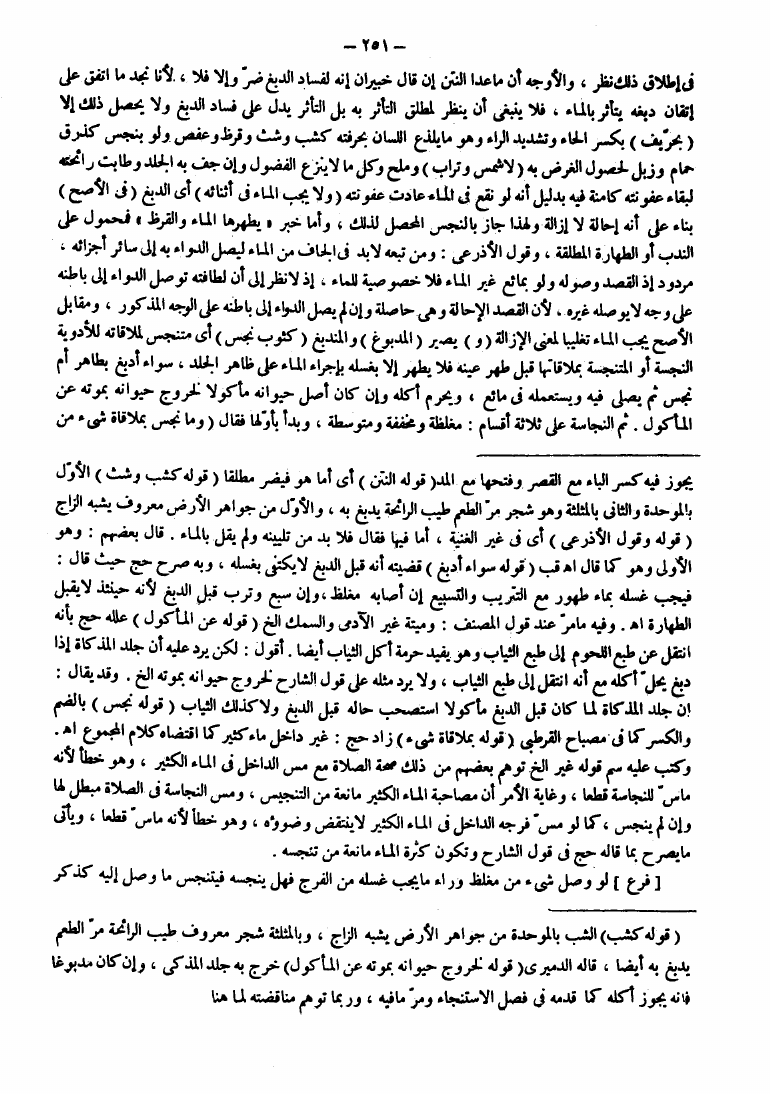 — ٢٥١ —
فى إطلاق ذلك نظر ، والأوجه أن ماعدا النتن إن قال خبيران إنه لفساد الدبغ ضرّ وإلا فلا ، لأنا نجد ما اتفق على
إتقان دبغه يتأثر بالماء ، فلا ينبغى أن ينظر لمطلق التأثر به بل التأثر يدل على فساد الدبغ ولا يحصل ذلك إلا
( بحرّيف ) بكسر الحاء وتشديد الراء وهو مايلذع اللسان بحرفته كشب وشث وقرظ وعفص ولو بنجس كذرق
حمام وزبل لحصول الغرض به ( لاشمس وتراب ) وملح وكل ما لاينزع الفضول وإن جف به الجلد وطابت رائحته
لبقاء عفونته كامنة فيه بدليل أنه لو نقع فى الماء عادت عفونته ( ولا يجب الماء فى أثنائه ) أى الدبغ ( فى الأصح )
بناء على أنه إحالة لا إزالة ولهذا جاز بالنجس المحصل لذلك ، وأما خبر « يطهرها الماء والقرظ » فمحمول على
الندب أو الطهارة المطلقة ، وقول الأذرعى : ومن تبعه لابد فى الجاف من الماء ليصل الدواء به إلى سائر أجزائه ،
مردود إذ القصد وصوله ولو بمائع غير الماء فلا خصوصية للماء ، إذ لانظر إلى أن لطافته توصل الدواء إلى باطنه
على وجه لايوصله غيره . لأن القصد الإحالة وهى حاصلة وإن لم يصل الدواء إلى باطنه على الوجه المذكور ، ومقابل
الأصح يجب الماء تغليبا لمعنى الإزالة ( و ) يصير ( المدبوغ ) والمندبغ ( كثوب نجس ) أى متنجس لملاقاته للأدوية
النجسة أو المتنجسة بملاقاتها قبل طهر عينه فلا يطهر إلا بغسله بإجراء الماء على ظاهر الجلد ، سواء أدبغ بطاهر أم
نجس ثم يصلى فيه ويستعمله فى مائع ، ويحرم أكله وإن كان أصل حيوانه مأكولا لخروج حيوانه بموته عن
المأكول . ثم النجاسة على ثلاثة أقسام : مغلظة ومخففة ومتوسطة ، وبدأ بأوّلها فقال ( وما نجس بملاقاة شىء من
يجوز فيه كسر الباء مع القصر وفتحها مع المد ( قوله النتن ) أى أما هو فيضر مطلقا ( قوله كشب وشث ) الأوّل
بالموحدة والثانى بالمثلثة وهو شجر مرّ الطعم طيب الرائحة يدبغ به ، والأوّل من جواهر الأرض معروف يشبه الزاج
( قوله وقول الأذرعى ) أى فى غير الغنية ، أما فيها فقال فلا بد من تليينه ولم يقل بالماء . قال بعضهم : وهو
الأولى وهو كما قال اه قب ( قوله سواء أدبغ ) قضيته أنه قبل الدبغ لايكتفى بغسله ، وبه صرح حج حيث قال :
فيجب غسله بماء طهور مع التتريب والتسبيع إن أصابه مغلظ ، وإن سبع وترب قبل الدبغ لأنه حينئذ لايقبل
الطهارة اه . وفيه مامرّ عند قول المصنف : وميتة غير الآدمى والسمك الخ ( قوله عن المأكول ) علله حج بأنه
انتقل عن طبع اللحوم إلى طبع الثياب وهو يفيد حرمة أكل الثياب أيضا . أقول : لكن يرد عليه أن جلد المذكاة إذا
دبغ يحلّ أكله مع أنه انتقل إلى طبع الثياب ، ولا يرد مثله على قول الشارح لخروج حيوانه بموته الخ . وقد يقال :
إن جلد المذكاة لما كان قبل الدبغ مأكولا استصحب حاله قبل الدبغ ولا كذلك الثياب ( قوله نجس ) بالضم
والكسر كما فى مصباح القرطبى ( قوله بملاقاة شىء ) زاد حج : غير داخل ماء كثير كما اقتضاه كلام المجموع اه .
وكتب عليه سم قوله غير الخ توهم بعضهم من ذلك صحة الصلاة مع مس الداخل فى الماء الكثير ، وهو خطأ لأنه
ماسّ للنجاسة قطعا ، وغاية الأمر أن مصاحبة الماء الكثير مانعة من التنجيس ، ومس النجاسة فى الصلاة مبطل لها
وإن لم ينجس ، كما لو مسّ فرجه الداخل فى الماء الكثير لاينتقض وضوؤه ، وهو خطأ لأنه ماسّ قطعا ، ويأتى
مايصرح بما قاله حج فى قول الشارح وتكون كثرة الماء مانعة من تنجسه .
[ فرع ] لو وصل شىء من مغلظ وراء مايجب غسله من الفرج فهل ينجسه فيتنجس ما وصل إليه كذكر
( قوله كشب ) الشب بالموحدة من جواهر الأرض يشبه الزاج ، وبالمثلثة شجر معروف طيب الرائحة مرّ الطعم
يدبغ به أيضا ، قاله الدميرى ( قوله لخروج حيوانه بموته عن المأكول ) خرج به جلد المذكى ، وإن كان مدبوغا
فانه يجوز أكله كما قدمه فى فصل الاستنجاء ومرّ مافيه ، وربما توهم مناقضته لما هنا